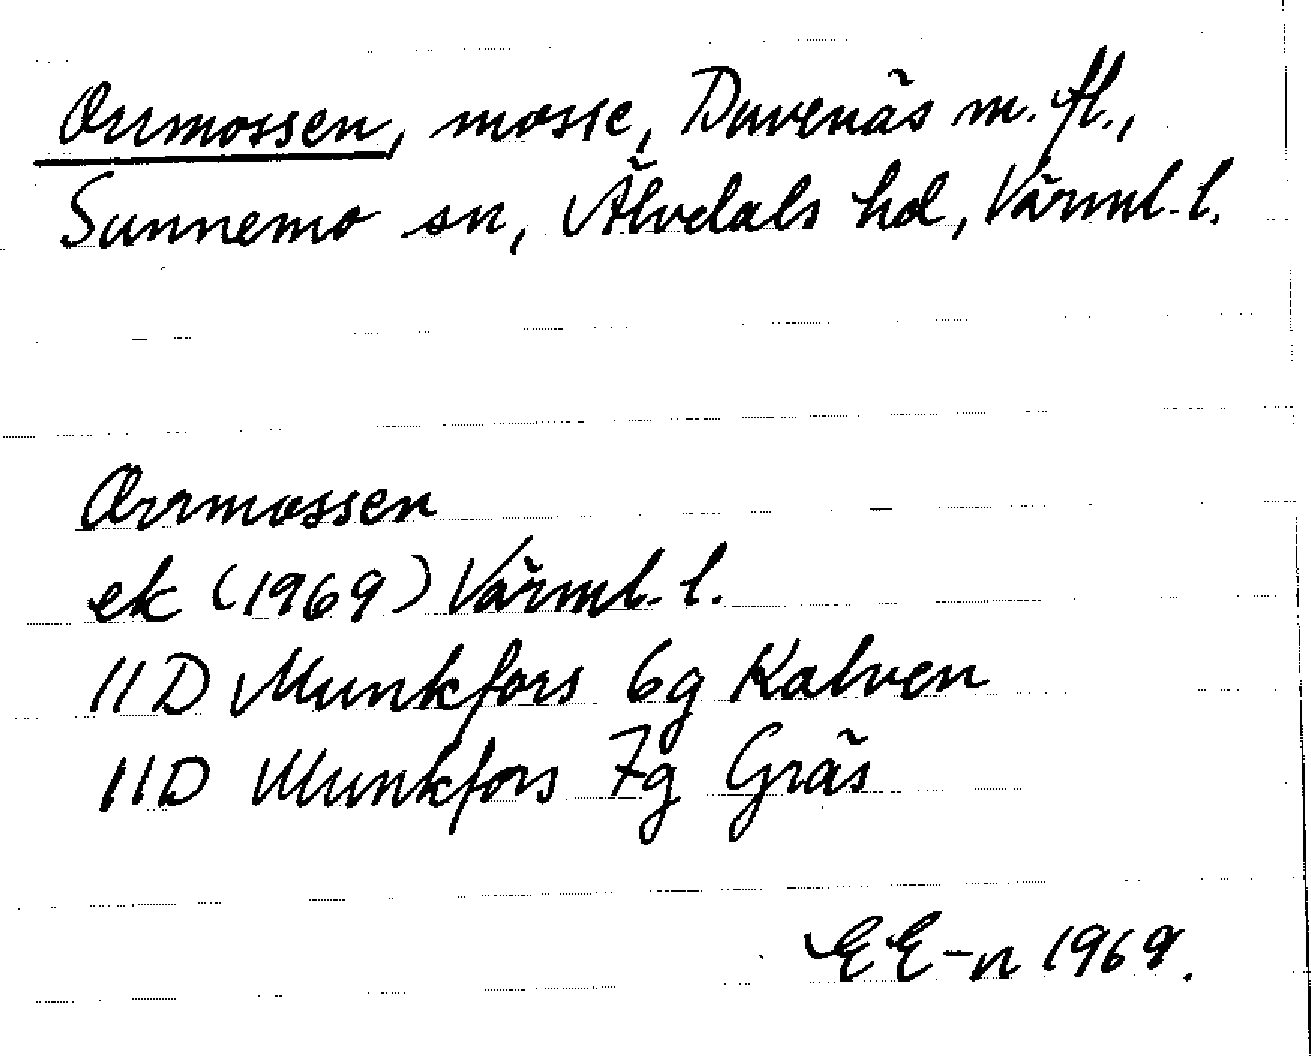 Orrmossen, mosse, Duvenäs m. fl.,
Sunnemo sn, Älvdals hd, Värml. l.
Orrmossen
ek (1969) Värml. l.
11D Munkfors 6g Kalven
11D Munkfors 7g Gräs
EE-n 1969.